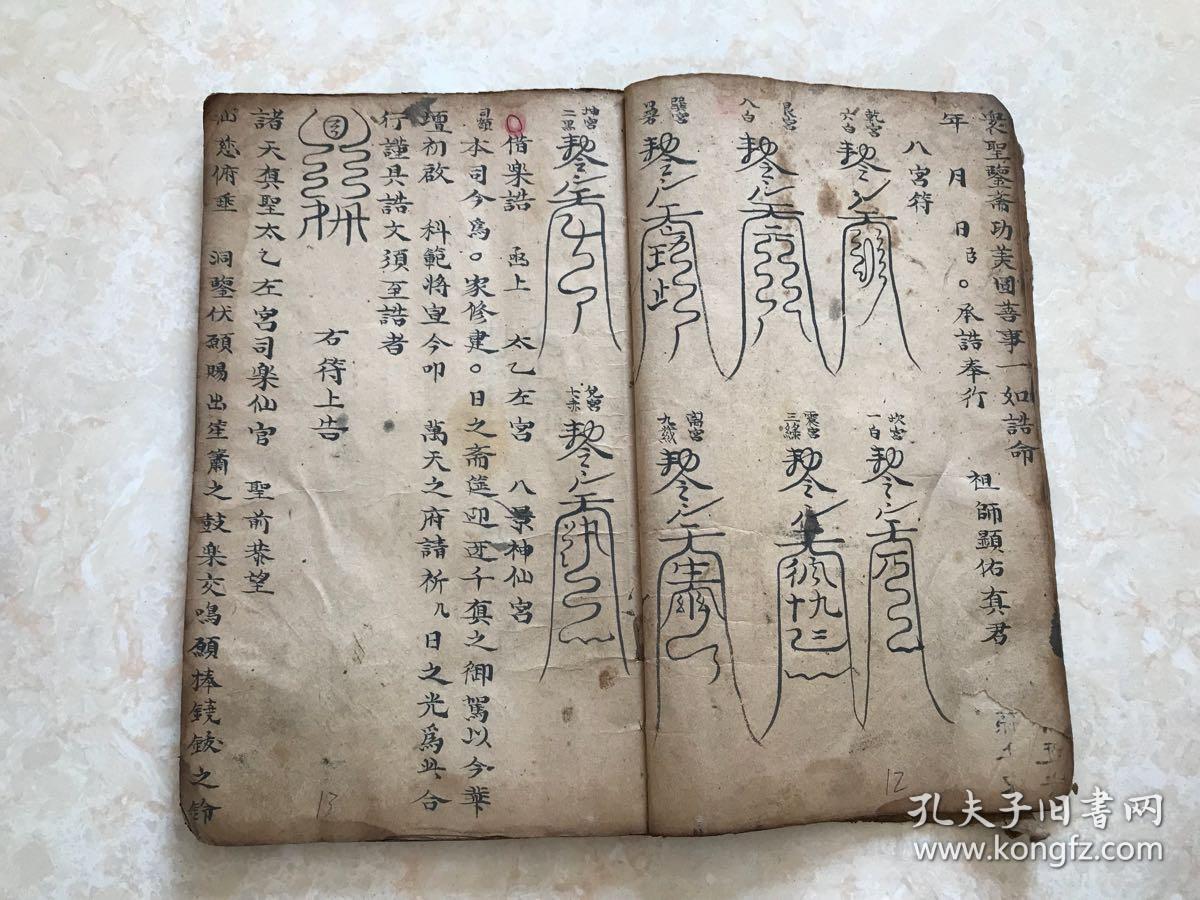 聖鑒齋功美圓善事一如誥命
年 月 日 承誥奉行 祖師顯佑真君
八宮符
乾宮
六白
艮宮
八白
巽宮
坎宮
一白
震宮
三綠
離宮
九紫
坤宮
二黑
兌宮
七赤
借樂誥 函上 太乙左宮 八景神仙宮
本司今為○家修建○日之齋筵迎迓千真之御駕以今華
壇初啟 科範將宣今叩 萬天之府請祈 日之光為此合
行謹具誥文須至誥者
右符上告
諸天真聖太乙左宮司樂仙官 聖前恭望
仙慈俯垂 洞鑒伏願賜出笙簫之鼓樂交鳴願捧鐃鈸之鈴
13
12
孔夫子旧书网
www.kongfz.com